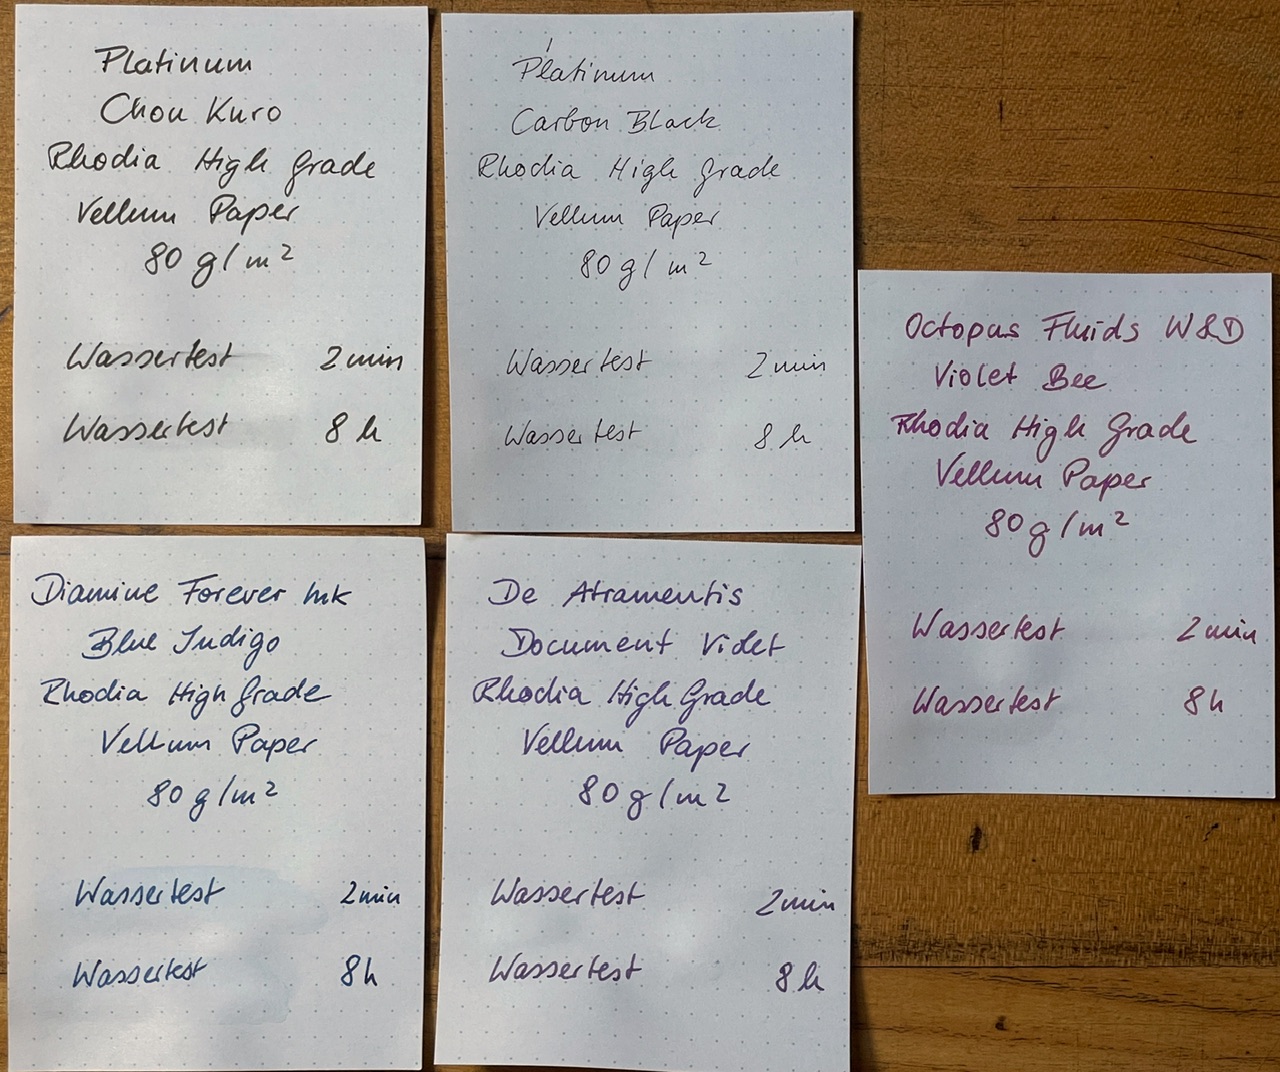 Platinum
Chou Kuro
Rhodia High Grade
Vellum Paper
80 g/m²
Wassertest 2 min
Wassertest 8 h
Platinum
Carbon Black
Rhodia High Grade
Vellum Paper
80 g/m²
Wassertest 2 min
Wassertest 8 h
Octopus Fluids W&D
Violet Bee
Rhodia High Grade
Vellum Paper
80 g/m²
Wassertest 2 min
Wassertest 8 h
Diamine Forever Ink
Blue Indigo
Rhodia High Grade
Vellum Paper
80 g/m²
Wassertest 2 min
Wassertest 8 h
De Atramentis
Document Violet
Rhodia High Grade
Vellum Paper
80 g/m²
Wassertest 2 min
Wassertest 8 h